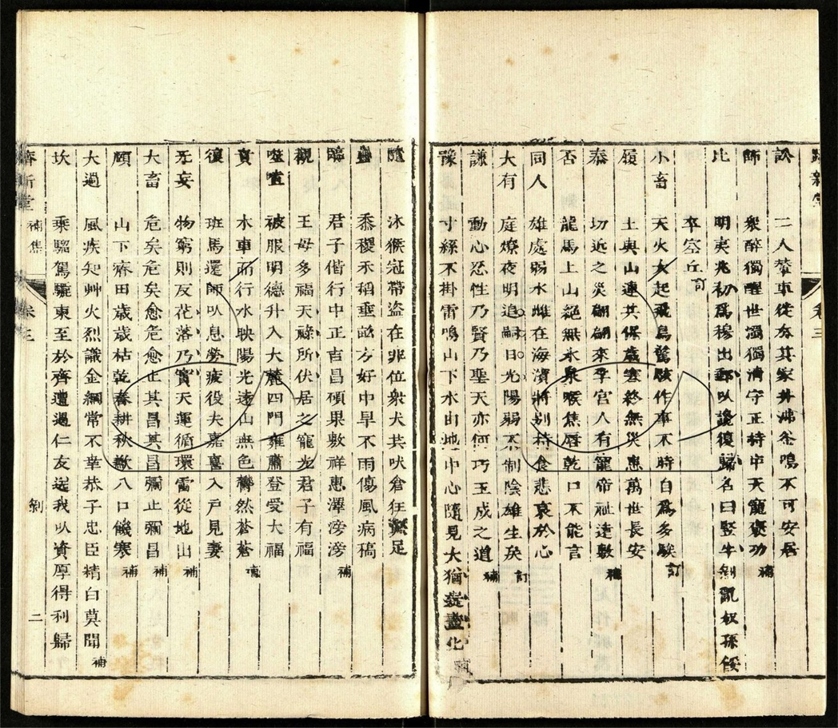 訟 二人輦車徙去其家井沸釜鳴不可安居
師 衆醉獨醒世濁獨清守正持中天寵褒功 補
比 明夷兆初為穆出郊以讒復歸名曰豎牛剝亂奴孫餒
卒空丘 訂
小畜 天火大起飛鳥驚駭作事不時自為多駭 訂
履 土與山連共保歲寒終無災患萬世長安
泰 切近之災翩翩來季宮人有寵帝祉達數 補
否 龍馬上山絕無水泉喉焦脣乾口不能言
同人 雄處弱水雌在海濱將別持食悲哀於心
大有 庭燎夜明追嗣日光陽弱不制陰雄生矣 訂
謙 動心忍性乃賢乃聖天亦何巧玉成之道 補
豫 寸絲不掛雷鳴山下水由地中心隨見大猶從盡化
隨 沐猴冠帶盜在非位衆犬共吠倉狂蹶足
蠱 黍稷禾稻垂畝方好中旱不雨傷風病稿
臨 君子偕行中正吉昌碩果數祥惠澤滂滂 補
觀 王母多福天祿所伏居之寵光君子有福
噬嗑 被服明德升入大麓四門雍肅登受大福
賁 水車而行水映陽光遠山無色鬱然蒼蒼
復 班馬還師以息勞疲役夫嘉喜入戶見妻
无妄 物窮則反花落乃實天運循環雷從地出 補
大畜 危矣危矣愈危愈正其昌其昌彌正彌昌 補
頤 山下瘠田歲歲枯乾春耕秋斂八口饑寒 補
大過 風疾知艸火烈識金綱常不幸恭子忠臣精白莫聞 補
坎 乘騮駕驪東至於齊遭遇仁友送我以資厚得利歸
補焦 卷三 剝 二